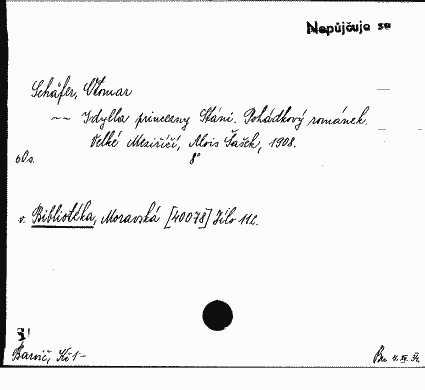 Nepůjčuje se
Schäfer, Otomar
~~ Idylla princezny Stáni. Pohádkový románek.
Velké Meziříčí, Alois Šašek, 1908.
60s. 8°
v. Bibliotéka, Moravská [40078] Dílo 112.
Barvič, Kč 1-